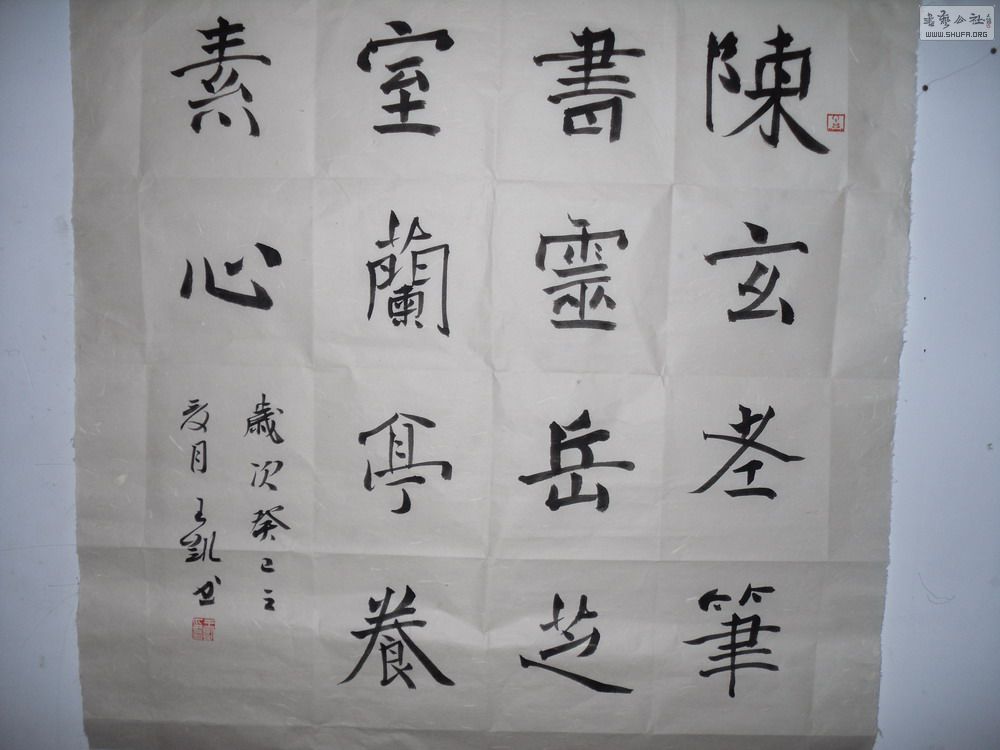 陳玄筆
書靈岳芝
室蘭亭養
素心
歲次癸巳之
夏月王凱书
書藝公社
WWW.SHUFA.ORG